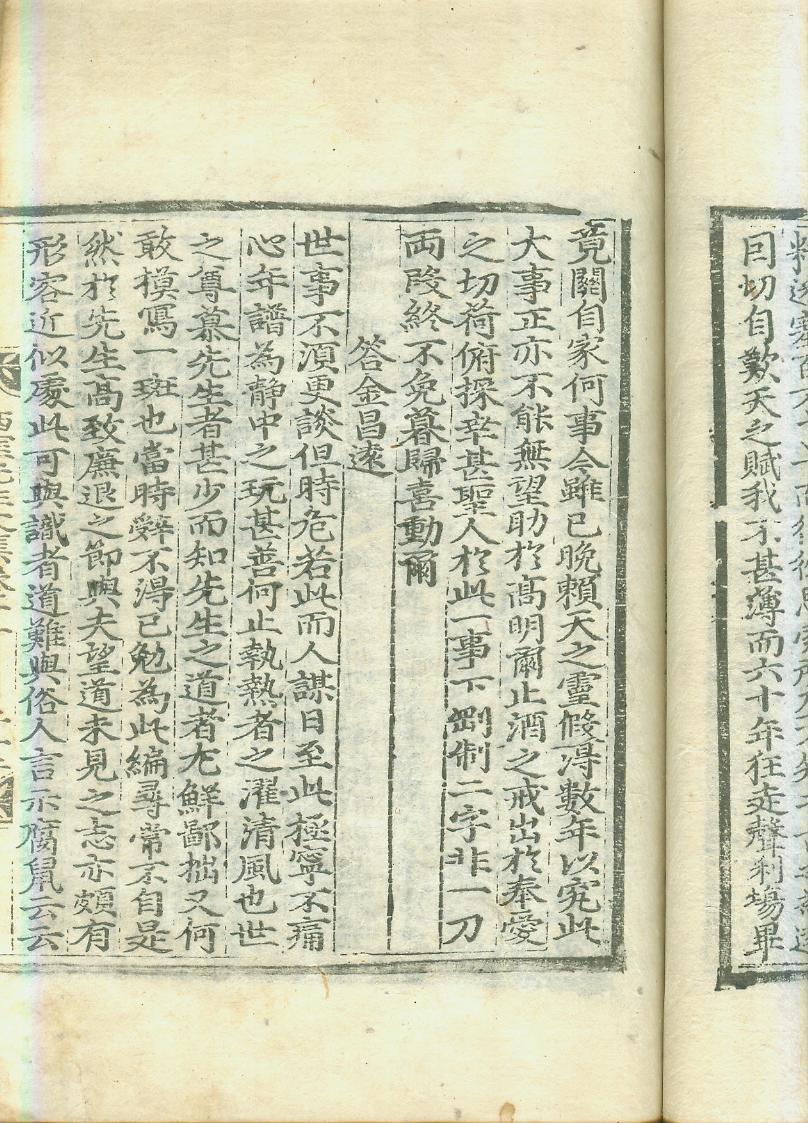 囙切自歎天之賦我不甚薄而六十年狂走聲利場畢
竟關自家何事今雖已晚賴天之靈假淂數年以究此
大事正亦不能無望助於高明爾止酒之戒出於奉愛
之切荷俯採幸甚聖人於此一事下剛制二字非一刀
両段終不免暮歸喜動爾
答金昌遠
世事不湏更談但時危若此而人謀日至此極寧不痛
心年譜為静中之玩甚善何止執熱者之濯清風也世
之尊慕先生者甚少而知先生之道者尤鮮鄙拙又何
敢模寫一斑也當時辭不淂已勉為此編尋常不自是
然於先生高致廉退之節與夫望道未見之志亦頗有
形容近似處此可與識者道難與俗人言示腐鼠云云